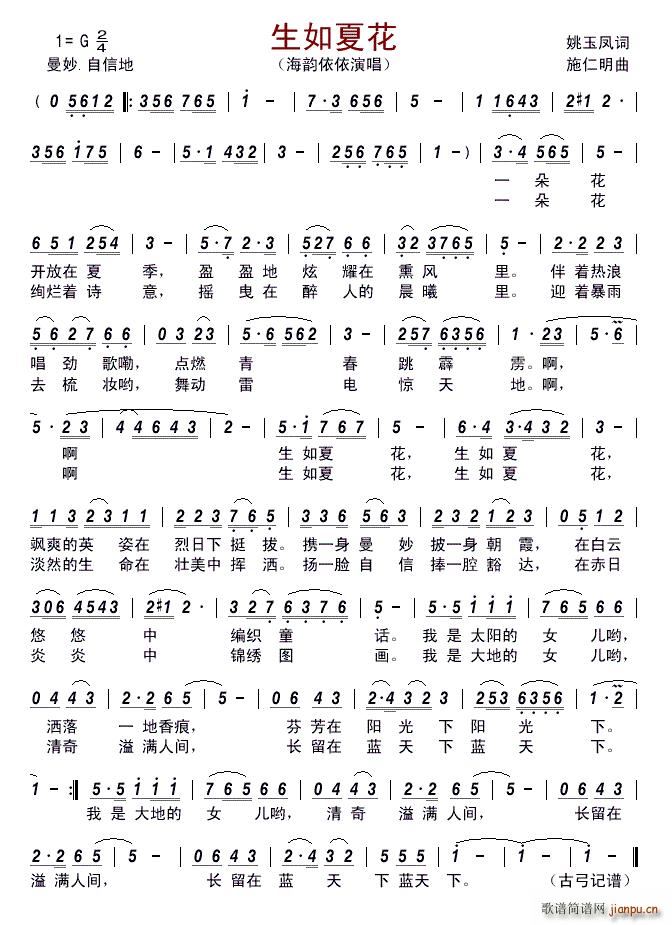 生如夏花
1= G 2/4
姚玉凤词
曼妙.自信地
（海韵依依演唱）
施仁明曲
( 0 5612 |: 356 765 | 1 - | 7·3 656 | 5 - | 1 1643 | 2#1 2· |
356 175 | 6 - | 5·1 432 | 3 - | 256 765 | 1 - ) | 3·4 565 | 5 - |
一 朵 花
一 朵 花
6 51 254 | 3 - | 5·7 2·3 | 527 6·6 | 32 3765 | 5 - | 2·2 23 |
开放在 夏 季， 盈 盈 地 炫 耀在 熏 风 里。 伴 着热浪
绚烂着 诗 意， 摇 曳 在 醉 人的 晨 曦 里。 迎 着暴雨
5627 66 | 03 23 | 5·6 562 | 3 - | 257 6356 | 1· 23 | 5·6 |
唱 劲 歌嘞， 点燃 青 春 跳 霹 雳。啊，
去 梳 妆哟， 舞动 雷 电 惊 天 地。啊，
5· 23 | 44643 | 2 - | 5·1 767 | 5 - | 6·4 3·432 | 3 - |
啊 生 如夏 花， 生 如 夏 花，
啊 生 如夏 花， 生 如 夏 花，
113 2311 | 223 765 | 336 363 | 232 123 | 0512 |
飒爽的英 姿在 烈日下 挺 拔。 携一身 曼 妙 披一身 朝 霞， 在白云
淡然的生 命在 壮美中 挥 洒。 扬一脸 自 信 捧一腔 豁 达， 在赤日
306 4543 | 2#1 2· | 327 6376 | 5 - | 5·5 111 | 765 65 |
悠 悠 中 编织 童 话。 我 是 太阳的 女 儿哟，
炎 炎 中 锦绣 图 画。 我 是 大地的 女 儿哟，
04 43 | 2·2 65 | 5 - | 06 43 | 2·4 323 | 253 6356 | 1·2 |
洒落 一 地香痕， 芬 芳在 阳 光 下 阳 光 下。
清奇 溢 满人间， 长 留在 蓝 天 下 蓝 天 下。
1 - :| 5·5 111 | 765 65 | 0443 | 2·2 65 | 5 - | 06 43 |
我 是 大地的 女 儿哟， 清 奇 溢 满 人间， 长留在
2·2 65 | 5 - | 06 43 | 2·4 323 | 2·2 55 | 1 - | 1 - | 1 0 ‖
溢 满人间， 长 留在 蓝 天 下 蓝天 下。 （古弓记谱）
歌谱简谱网
jianpu.cn